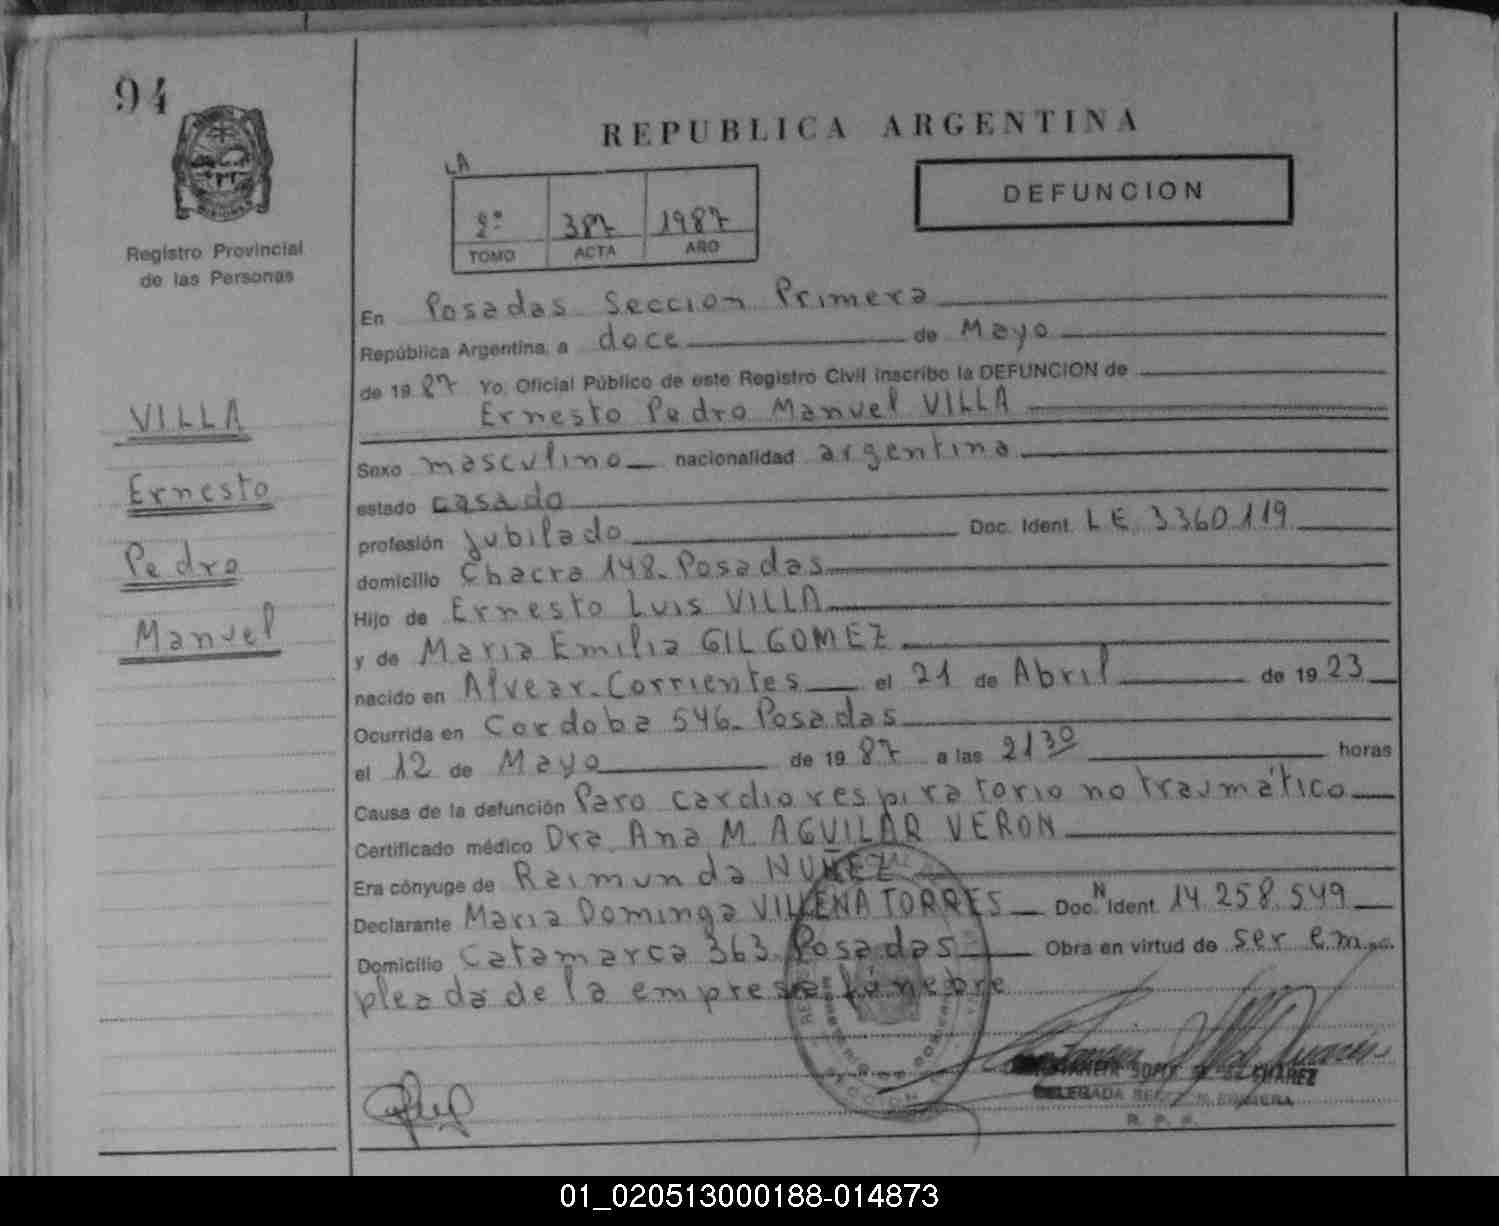 94
REPUBLICA ARGENTINA
LA
DEFUNCION
2º 387 1987
TOMO ACTA AÑO
Registro Provincial
de las Personas
En Posadas Seccion Primera
República Argentina, a doce de Mayo
de 19 87 Yo, Oficial Público de este Registro Civil inscribo la DEFUNCION de
Ernesto Pedro Manuel VILLA
VILLA
Ernesto
Pedro
Manuel
Sexo masculino nacionalidad argentina
estado casado
profesión Jubilado Doc. Ident. LE 3360119
domicilio Chacra 148. Posadas
Hijo de Ernesto Luis VILLA
y de Maria Emilia GIL GOMEZ
nacido en Alvear-Corrientes el 21 de Abril de 19 23
Ocurrida en Cordoba 546. Posadas
el 12 de Mayo de 19 87 a las 21 30 horas
Causa de la defunción Paro cardiorespiratorio no traumático
Certificado médico Dra. Ana M. AGUILAR VERON
Era cónyuge de Raimunda NUÑEZ
Declarante Maria Dominga VILLENA TORRES Doc. N Ident. 14.258.549
Domicilio Catamarca 363. Posadas Obra en virtud de ser em-
pleada de la empresa fúnebre
DELEGADA SECCION PRIMERA
R. P. P.
01_020513000188-014873